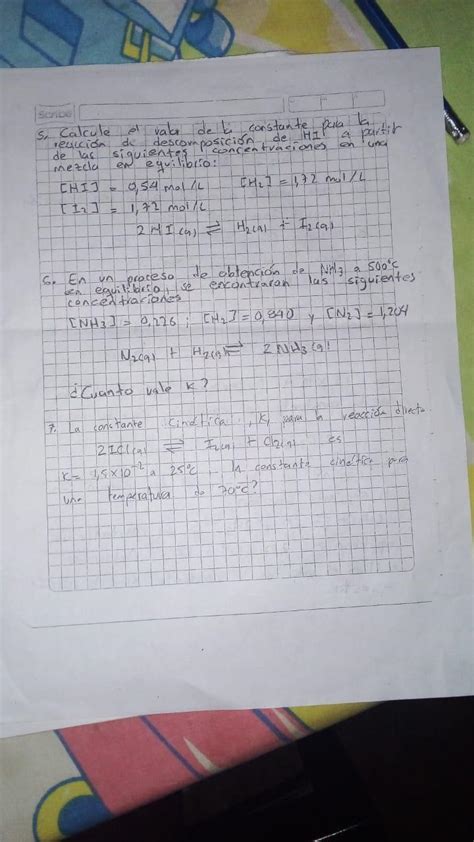 Scribe
5. Calcule el valor de la constante para la
reacción de descomposición de HI a partir
de las siguientes concentraciones en una
mezcla en equilibrio:
[HI] = 0,54 mol/L [H₂] = 1,72 mol/L
[I₂] = 1,72 mol/L
2 HI(g) ⇌ H₂(g) + I₂(g)
6. En un proceso de obtención de NH₃ a 500°c
en equilibrio, se encontraran las siguientes
concentraciones
[NH₃] = 0,226 ; [H₂] = 0,840 y [N₂] = 1,204
N₂(g) + H₂(g) ⇌ 2NH₃(g)
¿Cuanto vale K?
7. La constante cinética, K, para la reacción directa
2ICl(g) ⇌ I₂(g) + Cl₂(g) es
K = 1,5x10⁻² a 25°c, la constante cinética para
una temperatura de 70°c?